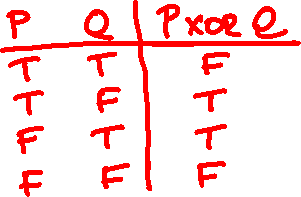 P Q P XOR Q
T T F
T F T
F T T
F F F